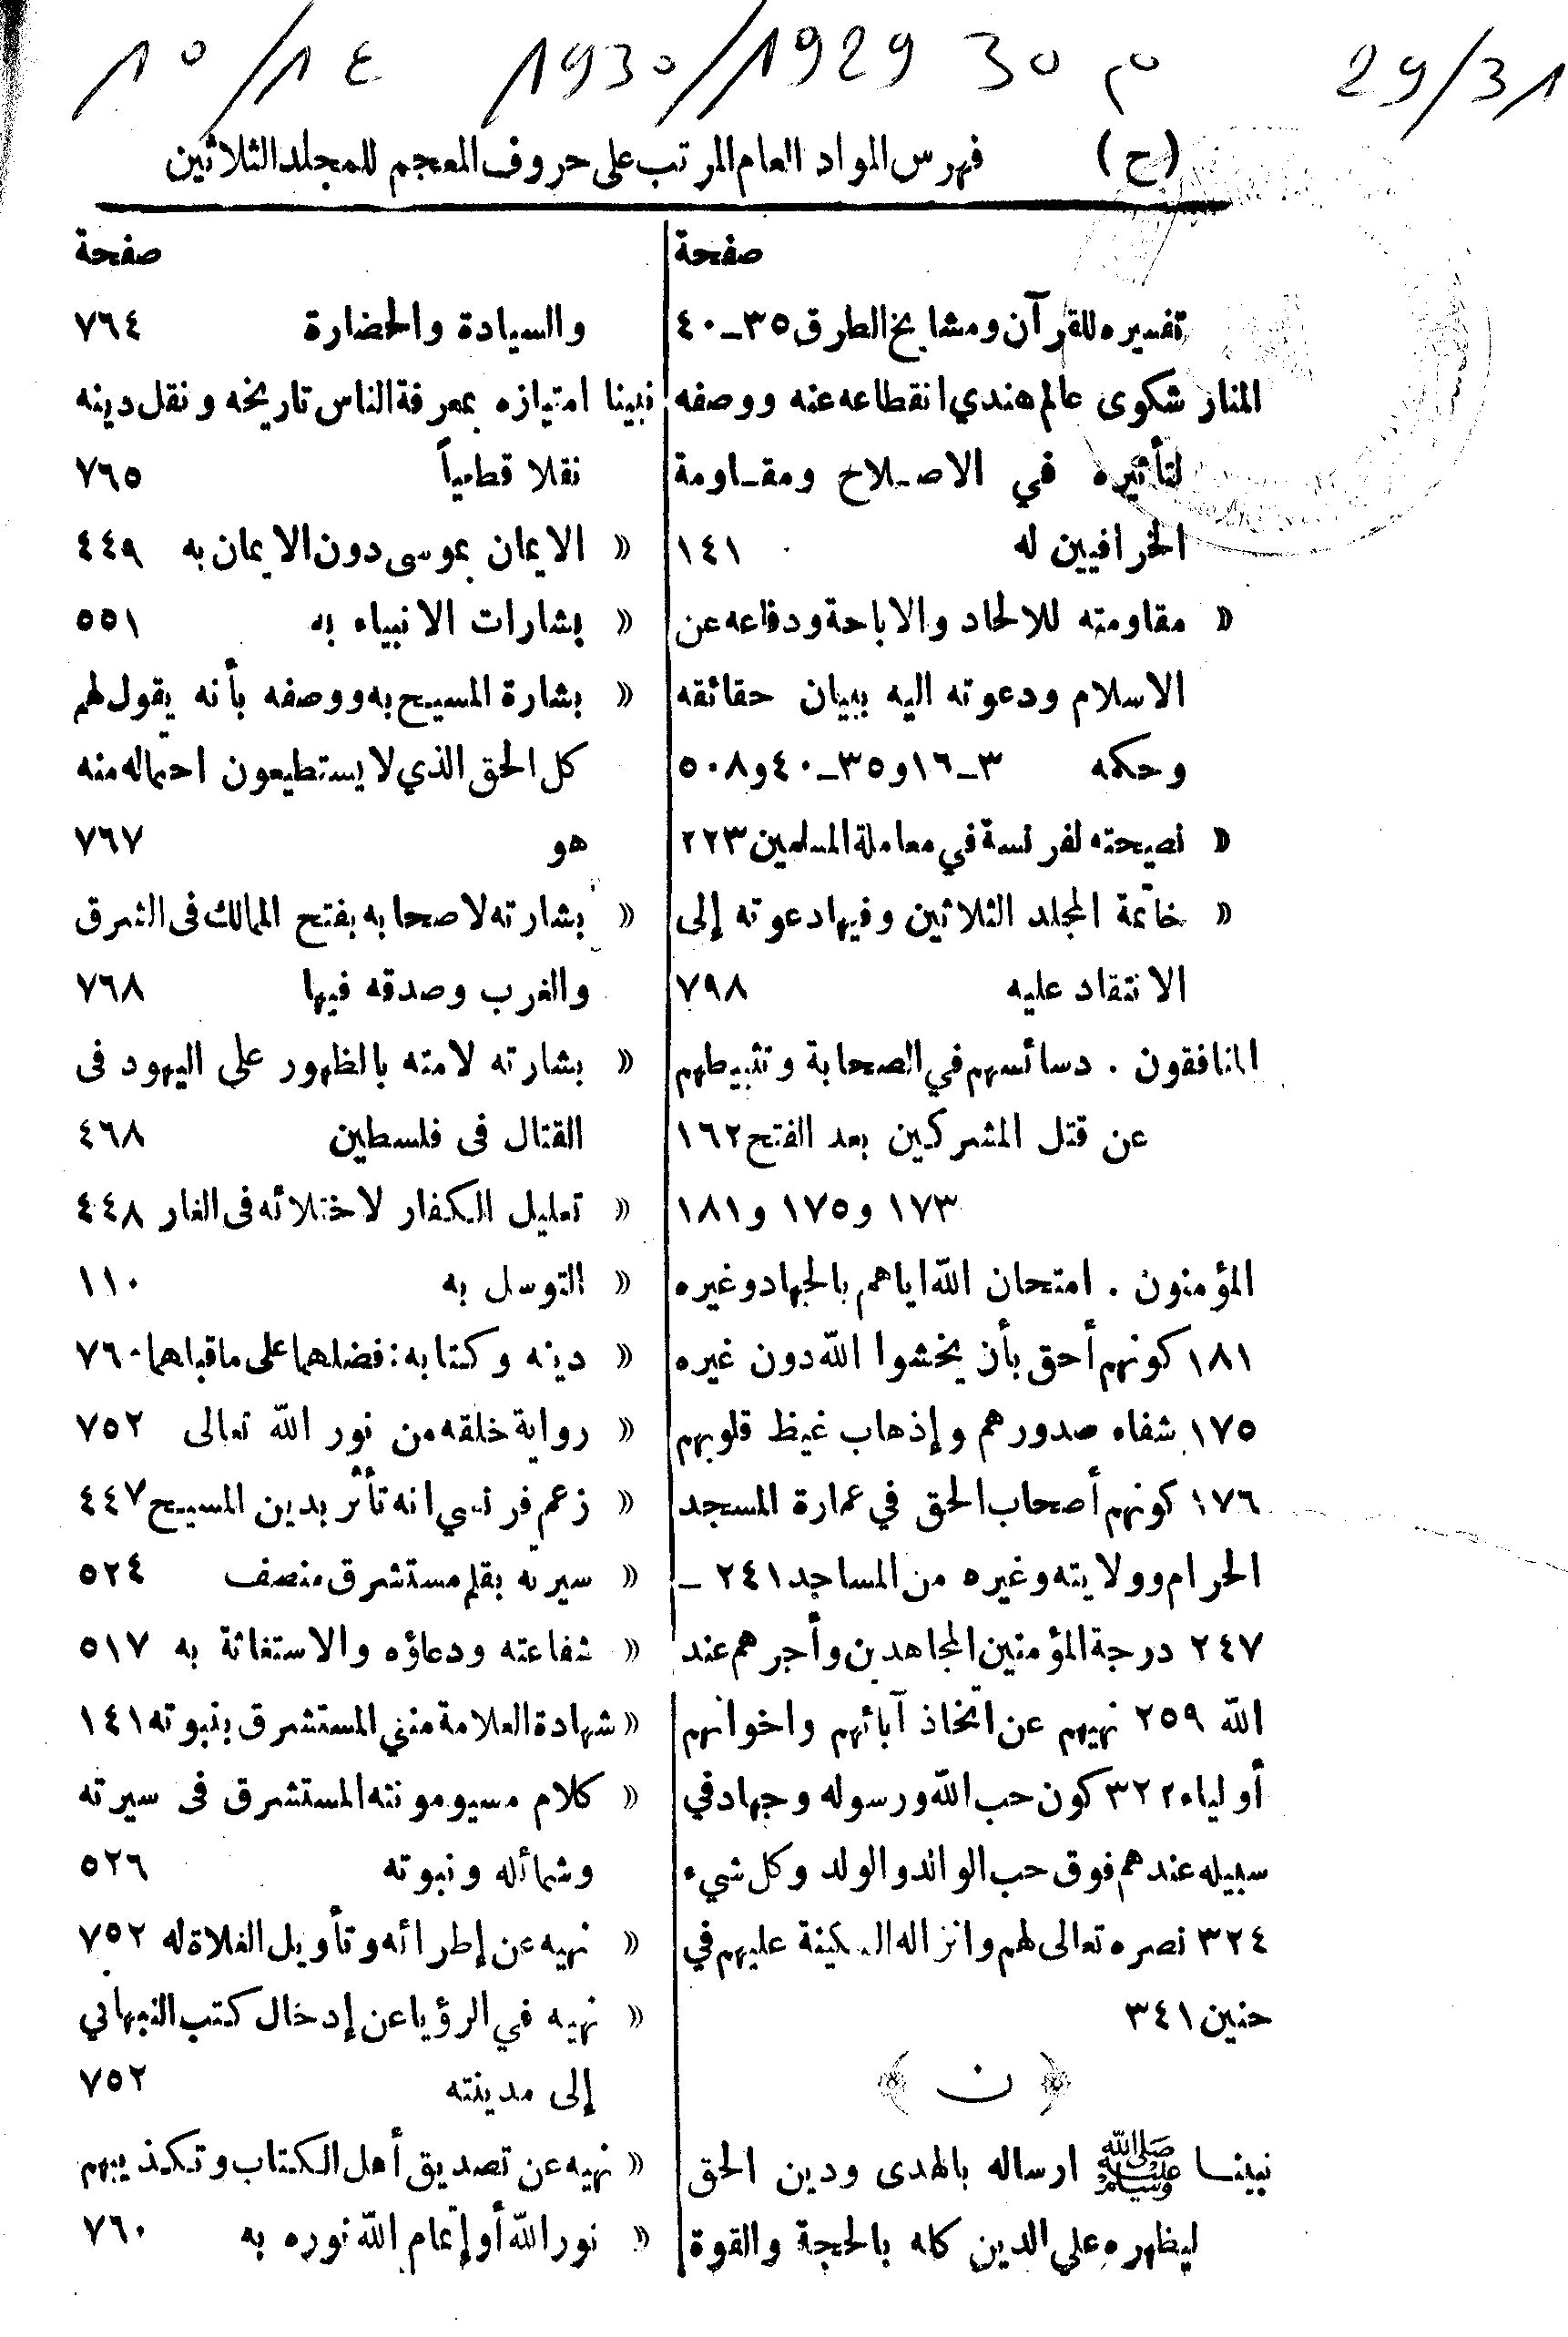 29/31 م 30 1929/1930 ١٤/١٥
(ح) فهرس المواد العام المرتب على حروف المعجم للمجلد الثلاثين
صفحة
تفسيره للقرآن ومشايخ الطرق ٣٥ــ٤٠
المنار شكوى عالم هندي انقطاعه عنه ووصفه
لتأثيره في الاصلاح ومقاومة
الخرافيين له ١٤١
« مقاومته للالحاد والاباحة ودفاعه عن
الاسلام ودعوته اليه ببيان حقائقه
وحكمه ٣ــ١٦ و٣٥ــ٤٠ و٥٠٨
« نصيحته لفرنسة في معاملة المسلمين ٢٢٣
« خاتمة المجلد الثلاثين وفيها دعوته إلى
الانتقاد عليه ٧٩٨
المنافقون . دسائسهم في الصحابة وتثبيطهم
عن قتل المشركين بعد الفتح ١٦٢
١٧٣ و١٧٥ و١٨١
المؤمنون . امتحان الله اياهم بالجهاد وغيره
١٨١ كونهم أحق بأن يخشوا الله دون غيره
١٧٥ شفاء صدورهم وإذهاب غيظ قلوبهم
١٧٦ كونهم أصحاب الحق في عمارة المسجد
الحرام وولايته وغيره من المساجد ٢٤١ ــ
٢٤٧ درجة المؤمنين المجاهدين وأجرهم عند
الله ٢٥٩ نهيهم عن اتخاذ آبائهم واخوانهم
أولياء ٣٢٢ كون حب الله ورسوله وجهاد في
سبيله عندهم فوق حب الوالد والولد وكل شيء
٣٢٤ نصره تعالى لهم وانزاله السكينة عليهم في
حنين ٣٤١
﴿ ن ﴾
نبينا ﷺ ارساله بالهدى ودين الحق
ليظهره على الدين كله بالحجة والقوة
صفحة
والسيادة والحضارة ٧٦٤
نبينا امتيازه بمعرفة الناس تاريخه ونقل دينه
نقلا قطعياً ٧٦٥
« الايمان بموسى دون الايمان به ٤٤٩
« بشارات الانبياء به ٥٥١
« بشارة المسيح به ووصفه بأنه يقول لهم
كل الحق الذي لا يستطيعون احتماله منه
هو ٧٦٧
« بشارته لاصحابه بفتح الممالك فى الشرق
والغرب وصدقه فيها ٧٦٨
« بشارته لامته بالظهور على اليهود فى
القتال فى فلسطين ٤٦٨
« تعليل الكفار لاختلائه فى الغار ٤٤٨
« التوسل به ١١٠
« دينه وكتابه: فضلهما على ماقبلهما ٧٦٠
« رواية خلقه من نور الله تعالى ٧٥٢
« زعم فرنسي انه تأثر بدين المسيح ٤٤٧
« سيرته بقلم مستشرق منصف ٥٢٤
« شفاعته ودعاؤه والاستغاثة به ٥١٧
« شهادة العلامة متني المستشرق بنبوته ١٤١
« كلام مسيو مونته المستشرق فى سيرته
وشمائله ونبوته ٥٢٦
« نهيه عن إطرائه وتأويل الغلاة له ٧٥٢
« نهيه في الرؤيا عن إدخال كتب النبهاني
إلى مدينته ٧٥٢
« نهيه عن تصديق أهل الكتاب وتكذيبهم
« نور الله أو إتمام الله نوره به ٧٦٠